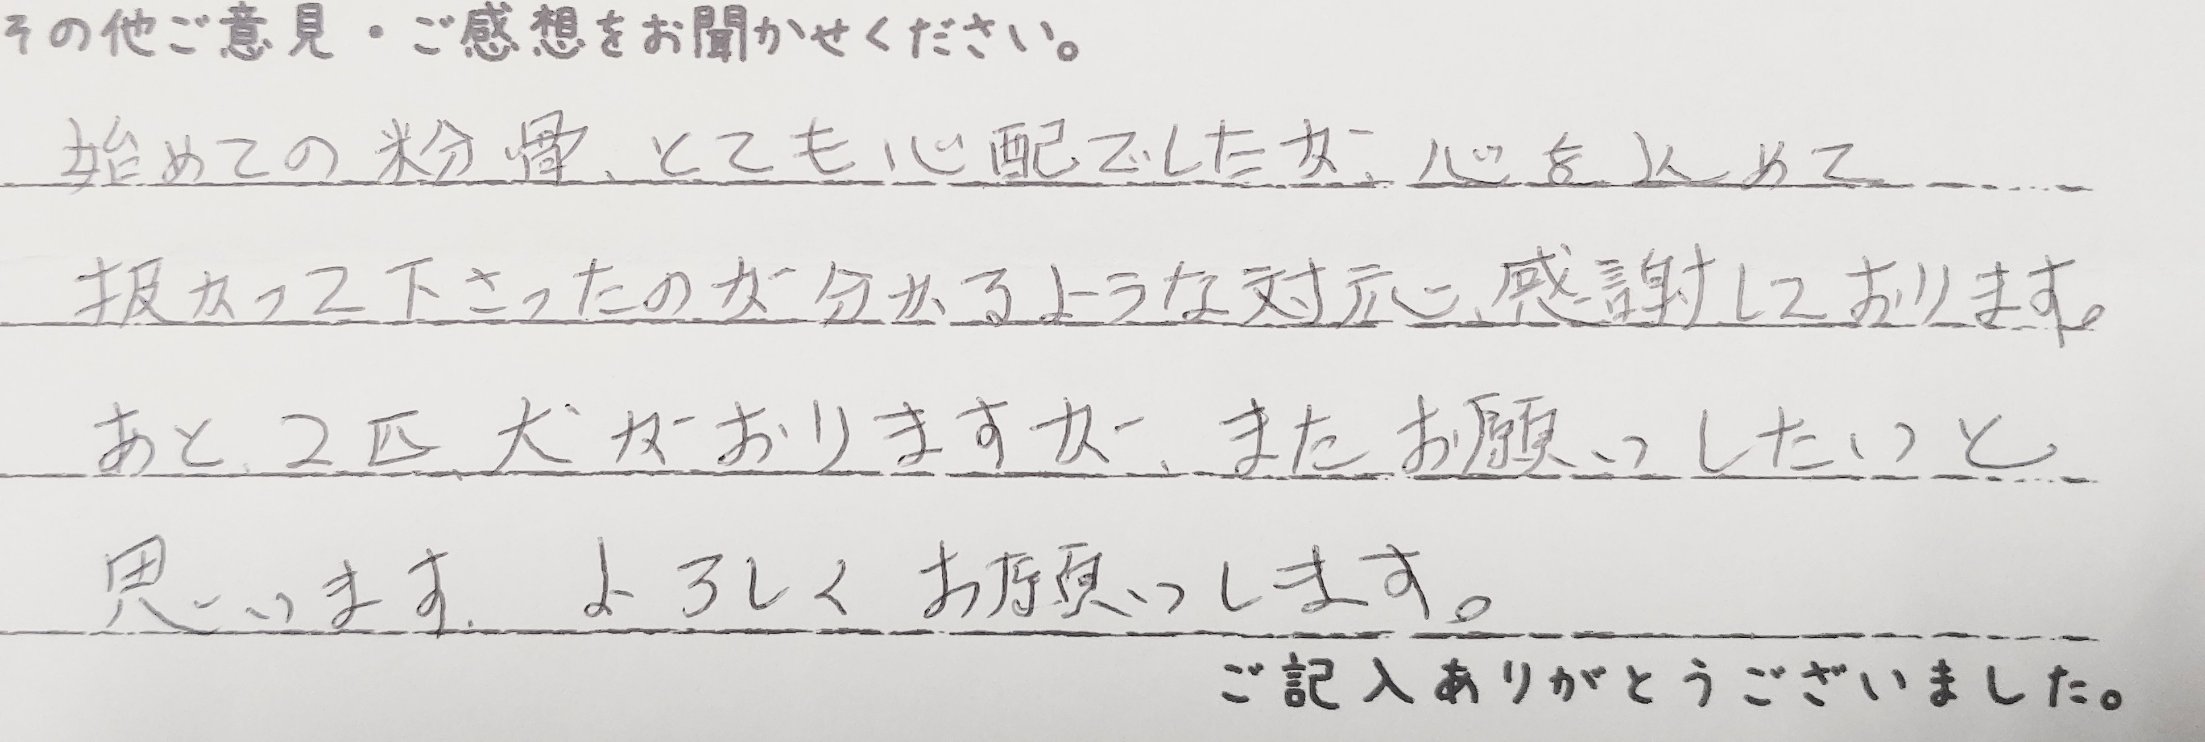 その他ご意見・ご感想をお聞かせください。
始めての粉骨、とても心配でしたが、心を込めて
扱かって下さったのが分かるような対応に、感謝しております。
あと、2匹、犬がおりますが、またお願いしたいと
思います。よろしくお願いします。
ご記入ありがとうございました。